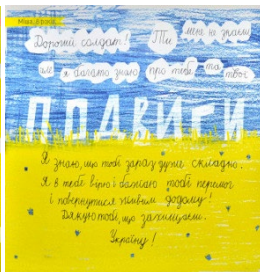 Дорогий солдат! Ти мене не знаєш
але я багато знаю про тебе та твої
ПОДВИГИ
Я знаю, що тобі зараз дуже складно.
Я в тебе вірю і бажаю тобі перемоги
і повернутися живим додому!
Дякую тобі, що захищаєш
Україну!